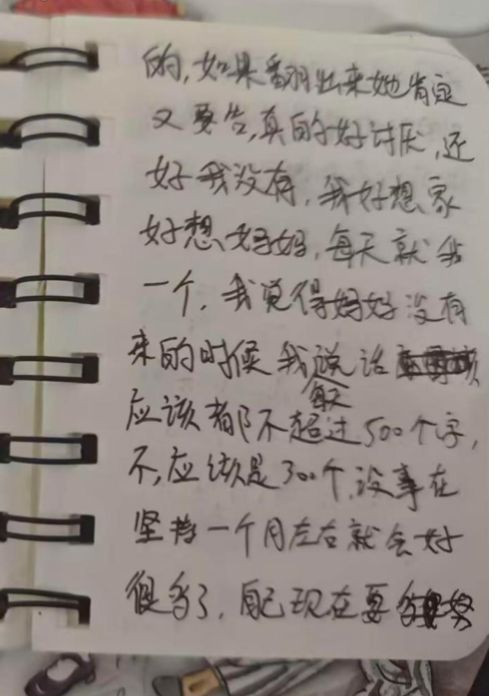 的,如果翻出来她肯定
又要告,真的好讨厌,还
好我没有,我好想家
好想妈妈,每天就我
一个,我觉得妈妈没有
来的时候我每天说话
应该都不超过500个字,
不,应该是300个,没事在
坚持一个月左右就会好
很多了,自己现在要努